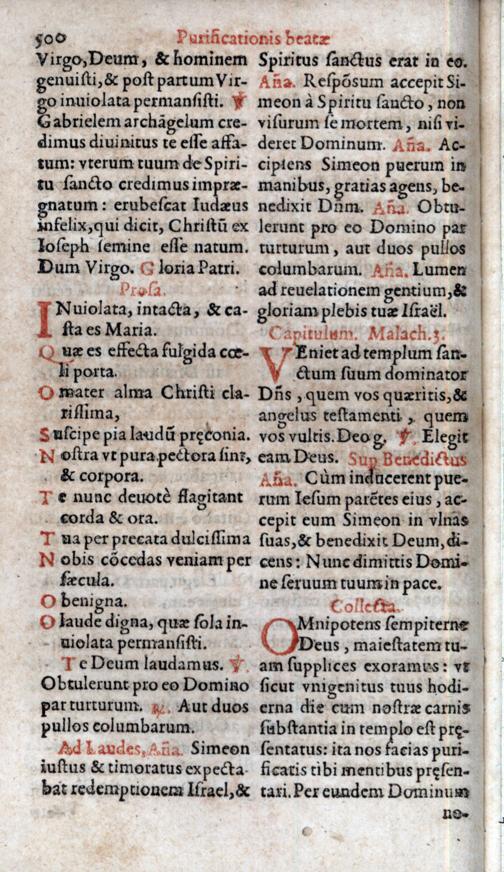 500
Purificationis beatæ
Virgo, Deum, & hominem
genuisti, & post partum Vir-
go inuiolata permansisti. ℣
Gabrielem archãgelum cre-
dimus diuinitus te esse affa-
tum: vterum tuum de Spiri-
tu sancto credimus impræ-
gnatum: erubescat Iudæus
infelix, qui dicit, Christũ ex
Ioseph semine esse natum.
Dum Virgo. Gloria Patri.
Prosa.
INuiolata, intacta, & ca-
sta es Maria.
Quæ es effecta fulgida cœ-
li porta.
O mater alma Christi cla-
rissima,
Suscipe pia laudũ pręconia.
Nostra vt pura pectora sint,
& corpora.
Te nunc deuotè flagitant
corda & ora.
Tua per precata dulcissima
Nobis cõcedas veniam per
sæcula.
O benigna.
O laude digna, quæ sola in-
uiolata permansisti.
Te Deum laudamus. ℣.
Obtulerunt pro eo Domino
par turturum. ℟. Aut duos
pullos columbarum.
Ad Laudes, Aña. Simeon
iustus & timoratus expecta-
bat redemptionem Israel, &
Spiritus sanctus erat in eo.
Aña. Respõsum accepit Si-
meon à Spiritu sancto, non
visurum se mortem, nisi vi-
deret Dominum. Aña. Ac-
cipiens Simeon puerum in
manibus, gratias agens, be-
nedixit Dñm. Aña. Obtu-
lerunt pro eo Domino par
turturum, aut duos pullos
columbarum. Aña. Lumen
ad reuelationem gentium, &
gloriam plebis tuæ Israël.
Capitulum. Malach. 3.
VEniet ad templum san-
ctum suum dominator
Dñs, quem vos quæritis, &
angelus testamenti, quem
vos vultis. Deo g. ℣. Elegit
eam Deus. Sup Benedictus
Aña. Cùm inducerent pue-
rum Iesum parẽtes eius, ac-
cepit eum Simeon in vlnas
suas, & benedixit Deum, di-
cens: Nunc dimittis Domi-
ne seruum tuum in pace.
Collecta.
OMnipotens sempiterne
Deus, maiestatem tu-
am supplices exoramus: vt
sicut vnigenitus tuus hodi-
erna die cum nostræ carnis
substantia in templo est prę-
sentatus: ita nos facias puri-
ficatis tibi mentibus pręsen-
tari. Per eundem Dominum
no-